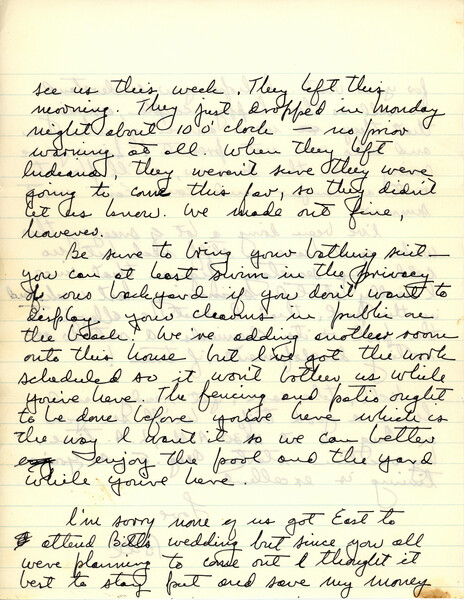 see us this week. They left this
morning. They just dropped in Monday
night about 10 o'clock — no prior
warning at all. When they left
Indiana, they weren't sure they were
going to come this far, so they didn't
let us know. We made out fine,
however.
Be sure to bring your bathing suit —
you can at least swim in the privacy
of our backyard if you don't want to
display your charms in public on
the beach. We're adding another room
onto this house but I've got the work
scheduled so it won't bother us while
you're here. The fencing and patio ought
to be done before you're here which is
the way I want it so we can better
enjoy the pool and the yard
while you're here.
I'm sorry none of us got East to
attend Bill's wedding but since you all
were planning to come out I thought it
best to stay put and save my money